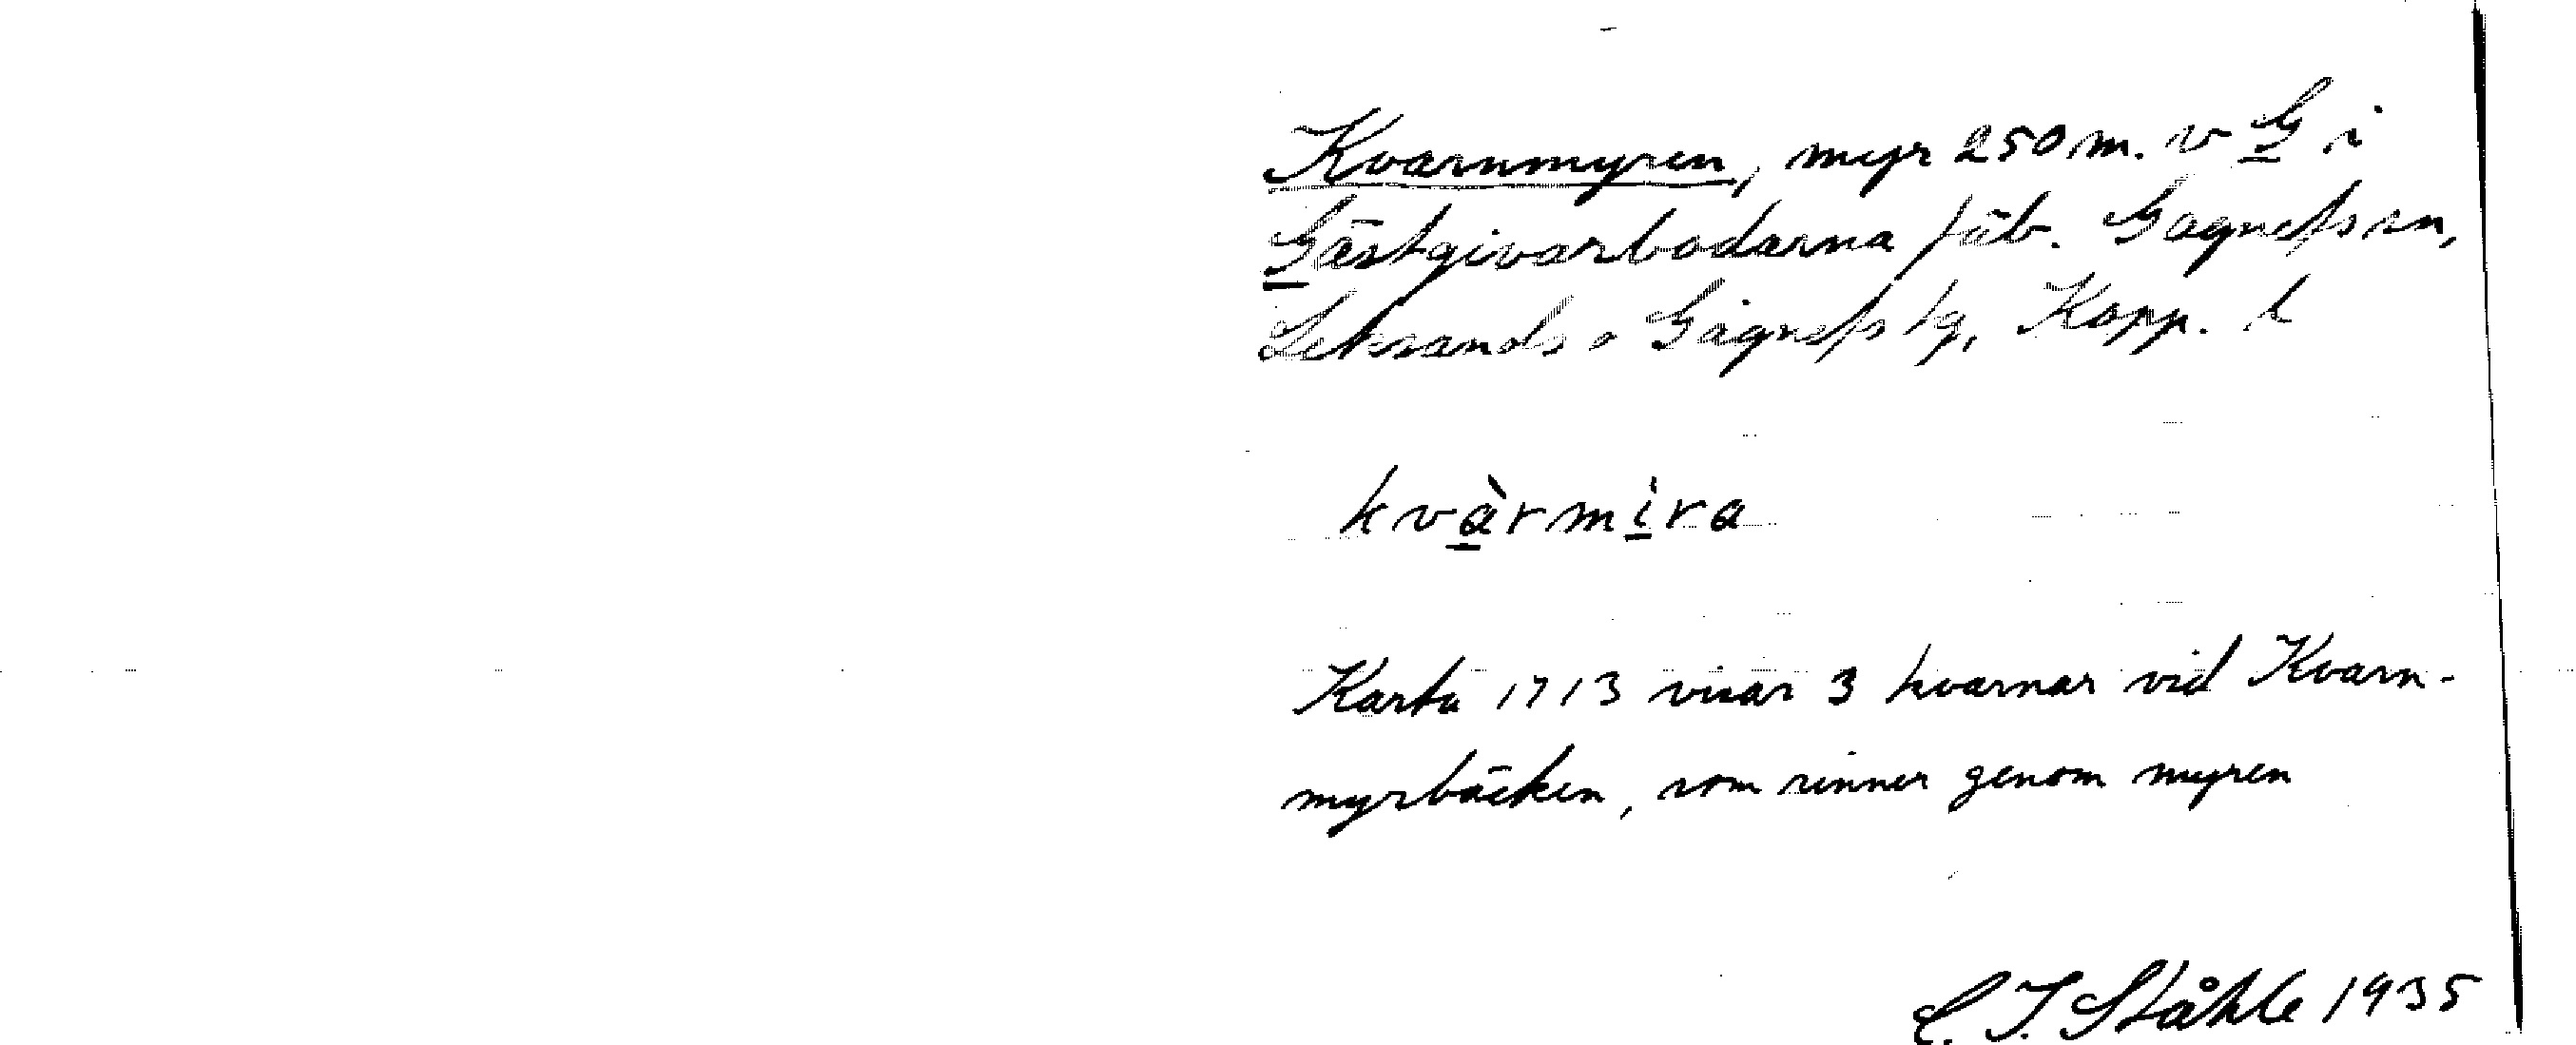 Kvarnmyren, myr 250 m. v G i
Gästgivarbodarna fäb. Gagnefs sn,
Leksands o Gagnefs tg, Kopp. l
kvàrmira
Karta 1713 visar 3 kvarnar vid Kvarn-
myrbäcken, som rinner genom myren
C. I. Ståhle 1935